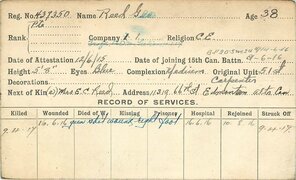 Reg. No. 437350 Name Reed Geo Age 38
Rank Pte Company Religion C.E.
Date of Attestation 12/6/15 Date of joining 15th Can. Battn. 9-6-16
Height 5'5 Eyes Blue Complexion Medium Original Unit 51st
Decorations Carpenter
Next of Kin Mrs E.C. Reed Address 1319 66th St Edmonton alta Can
RECORD OF SERVICES.
Killed Wounded Died of W. Missing Prisoner Hospital Rejoined Struck Off
9.4.17 16.6.16 gun shot wound right foot 16.6.16 10.8.16 9.4.17